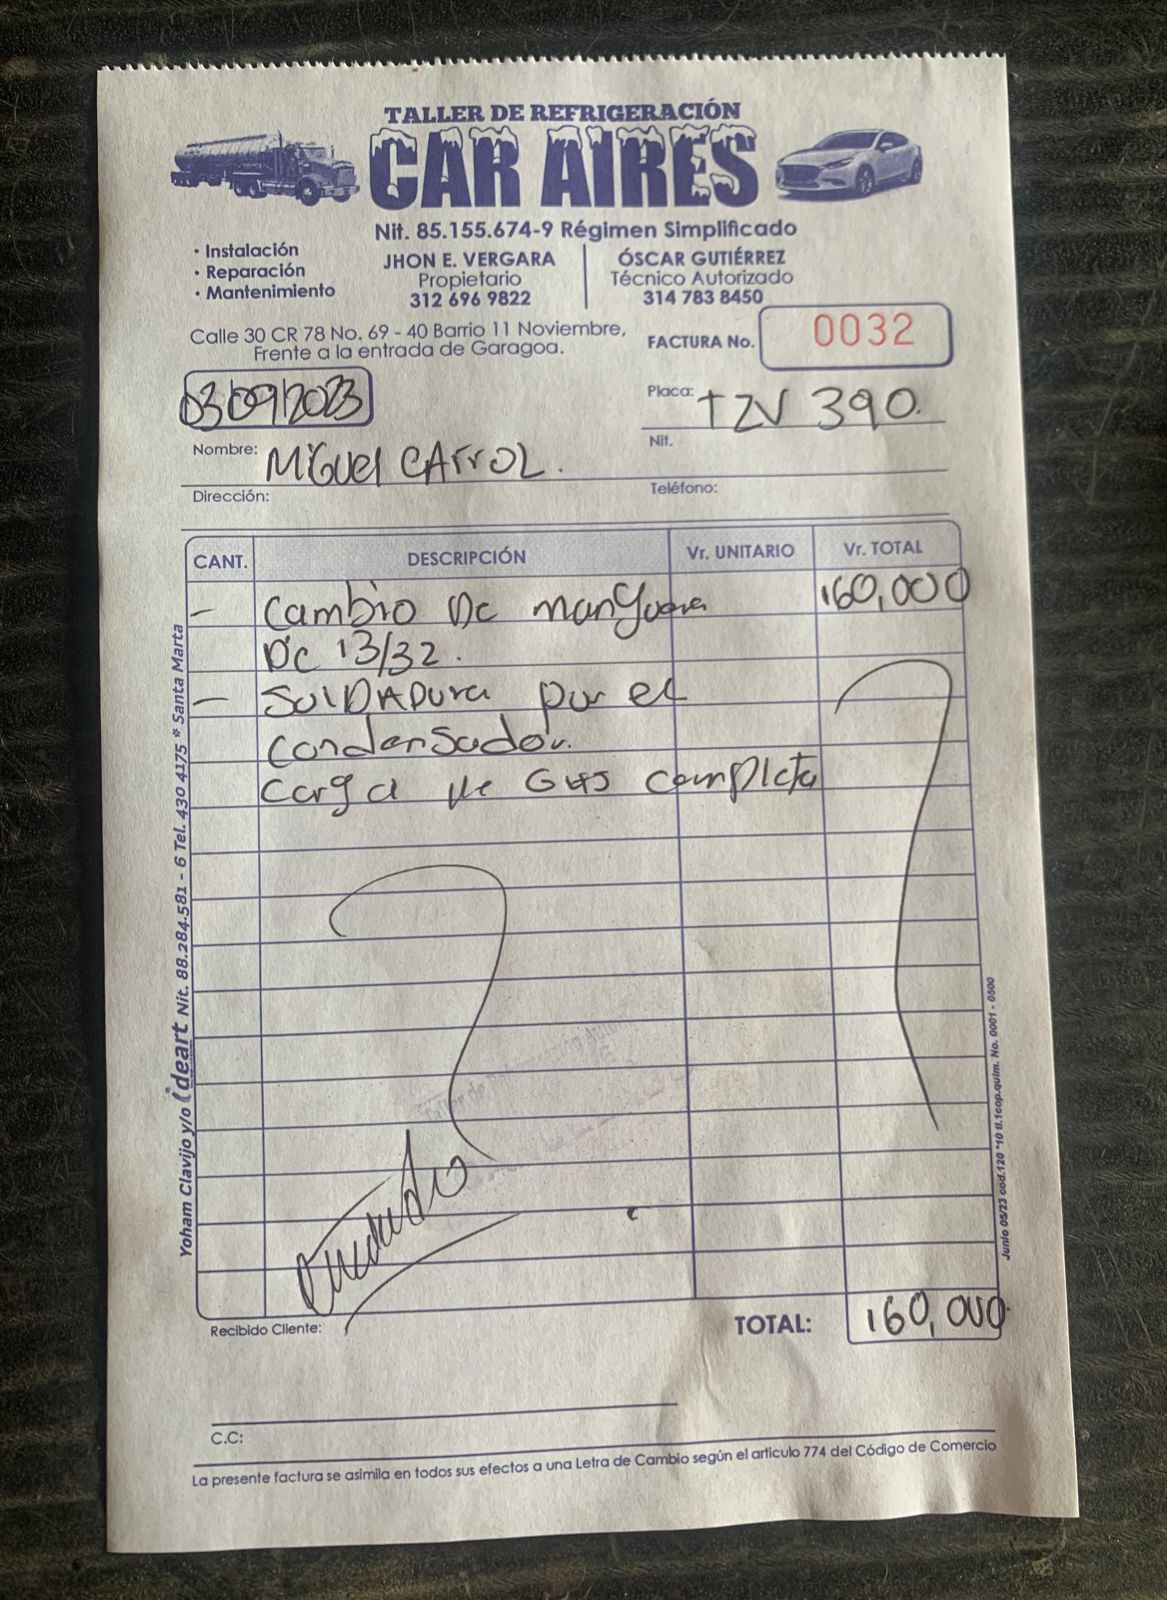 TALLER DE REFRIGERACIÓN
CAR AIRES
Nit. 85.155.674-9 Régimen Simplificado
• Instalación
• Reparación
• Mantenimiento
JHON E. VERGARA
Propietario
312 696 9822
ÓSCAR GUTIÉRREZ
Técnico Autorizado
314 783 8450
Calle 30 CR 78 No. 69 - 40 Barrio 11 Noviembre,
Frente a la entrada de Garagoa.
FACTURA No. 0032
03/09/2023
Placa: TZV 390.
Nombre: MiGuel CArrOL.
Nit.
Dirección:
Teléfono:
CANT. DESCRIPCIÓN Vr. UNITARIO Vr. TOTAL
— Cambio De manguera 160,000
De 13/32.
— SolDADura por el
condensador.
carga de Gas completa
Recibido Cliente:
TOTAL: 160,000
C.C:
La presente factura se asimila en todos sus efectos a una Letra de Cambio según el articulo 774 del Código de Comercio
Yoham Clavijo y/o ideart Nit. 88.284.581 - 6 Tel. 430 4175 * Santa Marta
Junio 05/23 cod.120 *10 tl.1cop.quím. No. 0001 - 0500